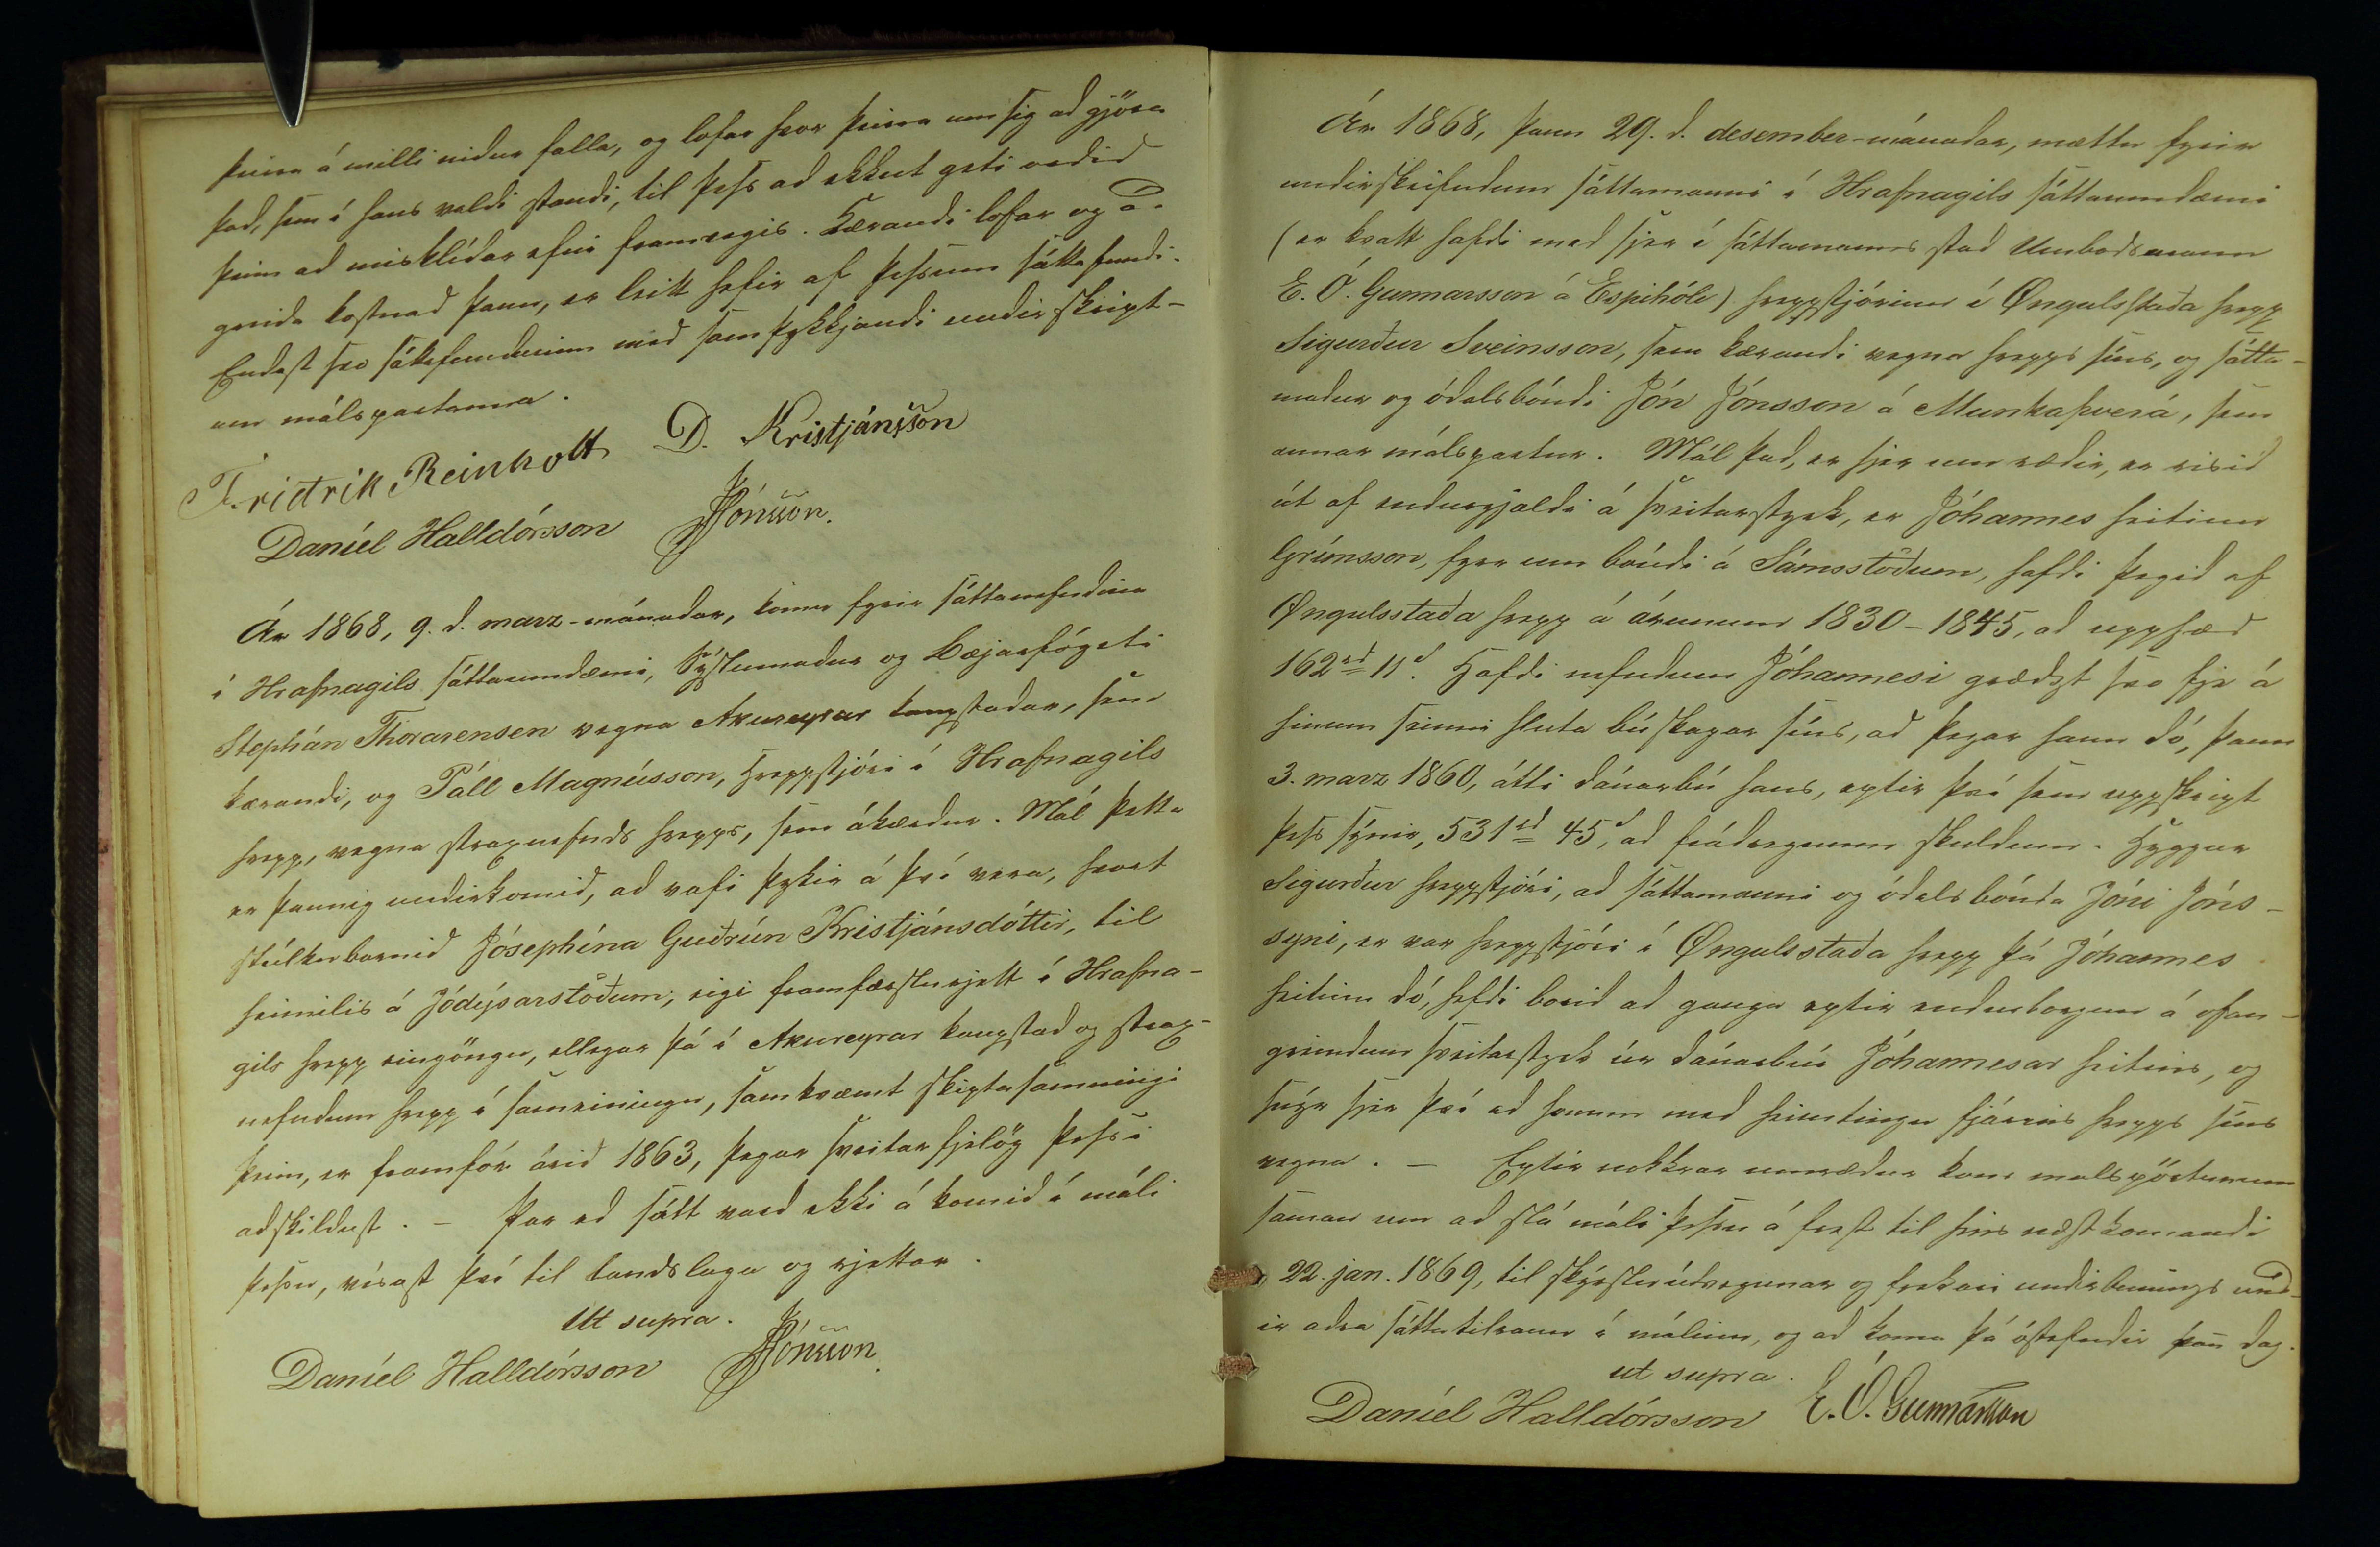 þeirra á milli niður falla, og lofar hvor þeirra um sig að gjöra
það, sem í hans valdi standi, til þess að ekkert geti orðið
þeim að misklíðar efni framvegis. Kærandi lofar og að
greiða kostnað þann, er leitt hefir af þessum sáttafundi.
Endast svo sáttafundurinn með samþykkjandi undirskript-
um málspartanna.
Fridrik Reinholt D. Kristjánsson
Daníel Halldórsson JJónsson.
Ár 1868, 9. d. marz-mánaðar, komu fyrir sáttanefndina
í Hrafnagils sáttaumdæmi, Sýslumaður og Bæjarfógeti
Stephán Thorarensen vegna Akureyrar kaupstaðar, sem
kærandi, og Páll Magnússon, Hreppstjóri í Hrafnagils
hrepp, vegna straxnefnds hrepps, sem ákærður. Mál þetta
er þannig undirkomið, að vafi þykir á því vera, hvort
stúlkubarnið Jósephína Guðrún Kristjánsdóttir, til
heimilis á Jódýsarstöðum, eigi framfærslurjett í Hrafna-
gils hrepp eingöngu, ellegar þá í Akureyrar kaupstað og strax-
nefndum hrepp í sameiningu, samkvæmt skiptasamningi
þeim, er framfór árið 1863, þegar sveitarfjelög þessi
aðskildust. – Þar eð sátt varð ekki á komið í máli
þessu, vísast því til landslaga og rjettar.
Ut supra.
Daníel Halldórsson JJónsson.
Ár 1868, þann 29. d. desember-mánaðar, mættu fyrir
undirskrifuðum sáttamanni í Hrafnagils sáttaumdæmi
(er kvatt hafði með sjer í sáttamanns stað Umboðsmann
E. Ó. Gunnarsson á Espihóli) hreppstjórinn í Øngulsstaða hrepp
Sigurður Sveinsson, sem kærandi vegna hrepps síns, og sátta-
maður og óðalsbóndi Jón Jónsson á Munkaþverá, sem
annar málspartur. Mál það, er hjer um ræðir, er risið
út af endurgjaldi á sveitarstyrk, er Jóhannes heitinn
Grímsson, fyrrum bóndi á Sámsstöðum, hafði þegið af
Øngulsstaða hrepp á árunum 1830-1845, að upphæð
162rd 11s. Hafði nefndum Jóhannesi græðzt svo fje á
hinum seinni hluta búskapar síns, að þegar hann dó, þann
3. marz 1860, átti dánarbú hans, eptir því sem uppskript
þess sýnir, 531rd 45s, að frádregnum skuldum. Hyggur
Sigurður hreppstjóri, að sáttamanni og óðalsbónda Jóni Jóns-
syni, er var hreppstjóri í Øngulsstaða hrepp þá Jóhannes
heitinn dó, hefði borið að ganga eptir endurborgun á ofan-
greindum sveitarstyrk úr dánarbúi Jóhannesar heitins, og
snýr sjer því að honum með heimtingu fjárins hrepps síns
vegna. – Eptir nokkrar umræður kom málspörtunum
saman um að slá máli þessu á frest til hins næstkomandi
22. jan. 1869, til skýrslu útvegunar og frekari undirbúnings und-
ir aðra sáttatilraun í málinu, og að koma þá óstefndir þan̄ dag.
ut supra.
Daníel Halldórsson E. Ó. Gunnarsson